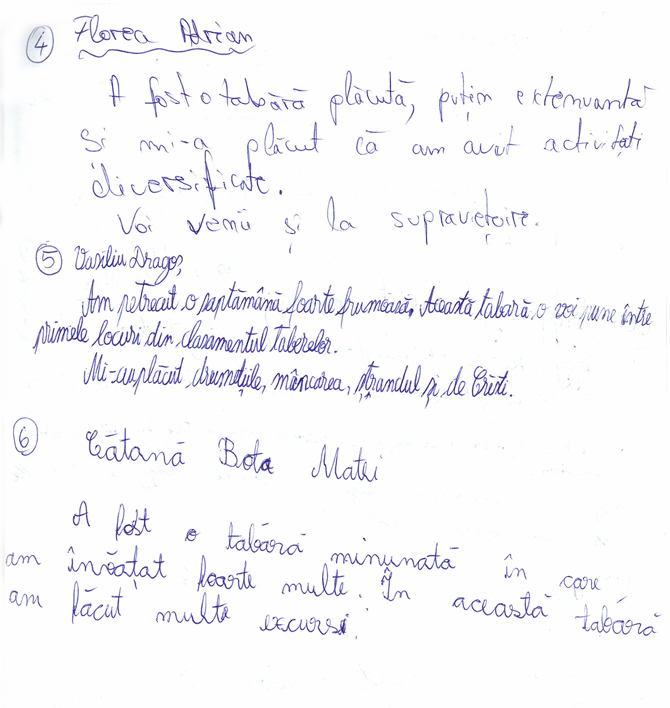 4 Florea Adrian
A fost o tabără plăcută, puțin extenuantă
și mi-a plăcut că am avut activități
diversificate.
Voi veni și la supraviețuire.
5 Vasiliu Dragoș
Am petrecut o saptămână foarte frumoasă. Această tabară, o voi pune între
primele locuri din clasamentul taberelor.
Mi-au plăcut drumețiile, mâncarea, ștrandul și de Cristi.
6 Cătană Bota Matei
A fost o tabără minunată în care
am învățat foarte multe. În această tabără
am făcut multe excursi.